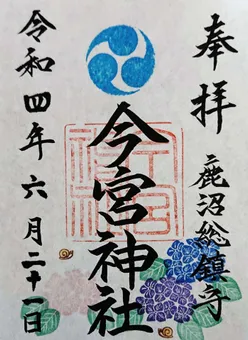 奉拝
鹿沼総鎮守
今宮神社
令和四年六月二十一日